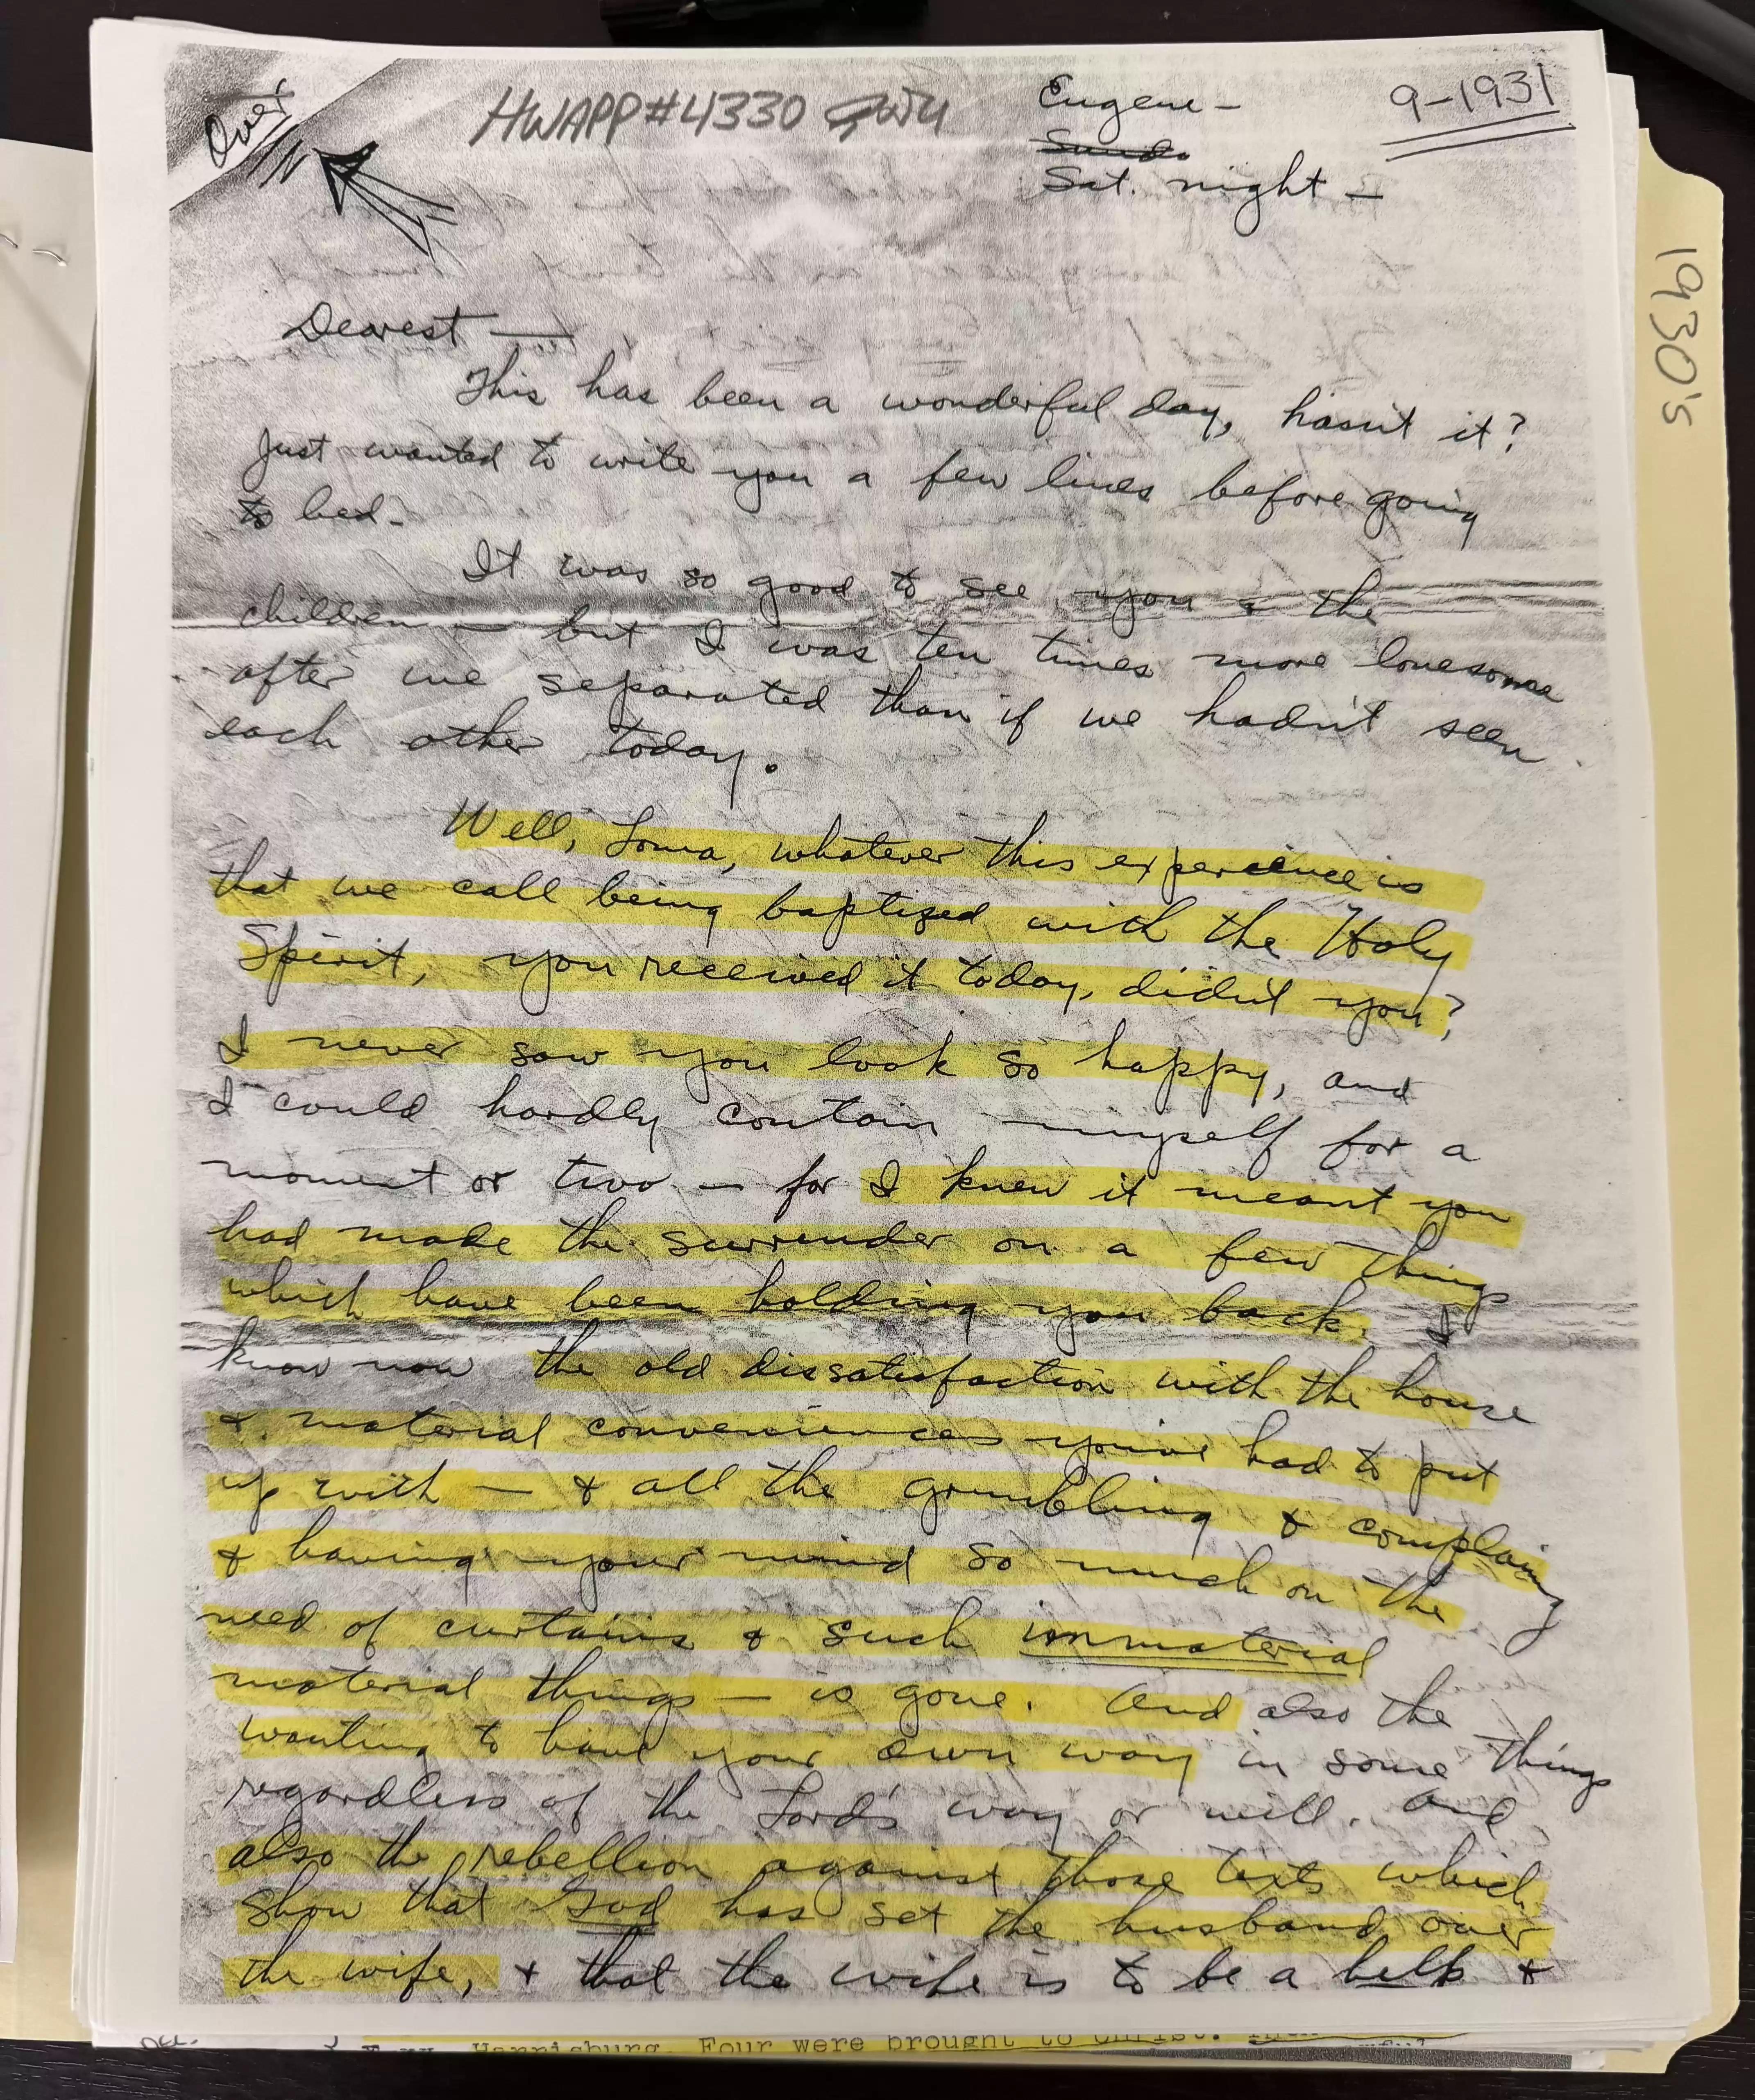 Over
HWAPP#4330
Eugene —
9-1931
Sat. night —
1930's
Dearest —
This has been a wonderful day, hasn't it?
Just wanted to write you a few lines before going
to bed.
It was so good to see you & the
children — but I was ten times more lonesome
after we separated than if we hadn't seen
each other today.
Well, Loma, whatever this experience is
that we call being baptized with the Holy
Spirit, you received it today, didn't you?
I never saw you look so happy, and
I could hardly contain myself for a
moment or two — for I knew it meant you
had made the surrender on a few things
which have been holding you back. I
know now the old dissatisfaction with the house
& material conveniences you've had to put
up with — & all the grumbling & complaing
& having your mind so much on the
need of curtains & such immaterial
material things — is gone. And also the
wanting to have your own way in some things
regardless of the Lord's way or will. And
also the rebellion against those texts which
show that God has set the husband over
the wife, & that the wife is to be a help &
Harrisburg. Four were brought to Christ.